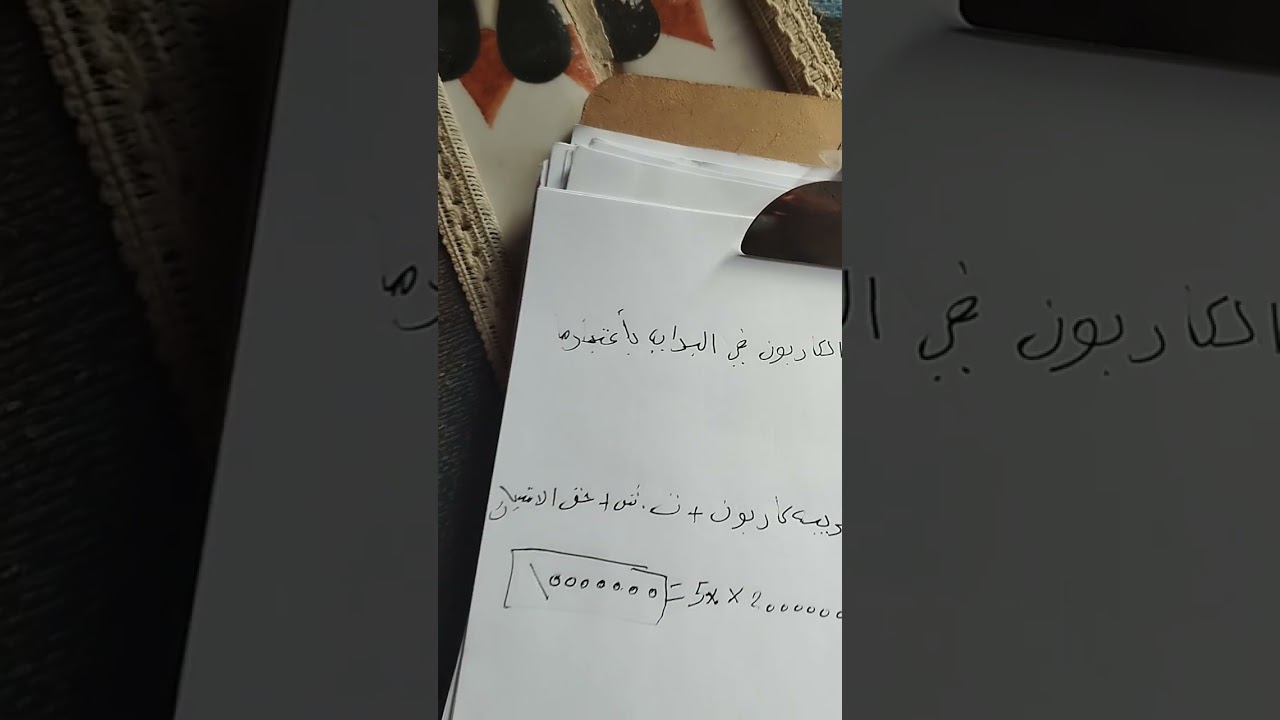 الكاربون في البداية بأعتبارها
ضريبة كاربون + ن.نش + حق الامتياز
\0000000 = 5% × 2000000